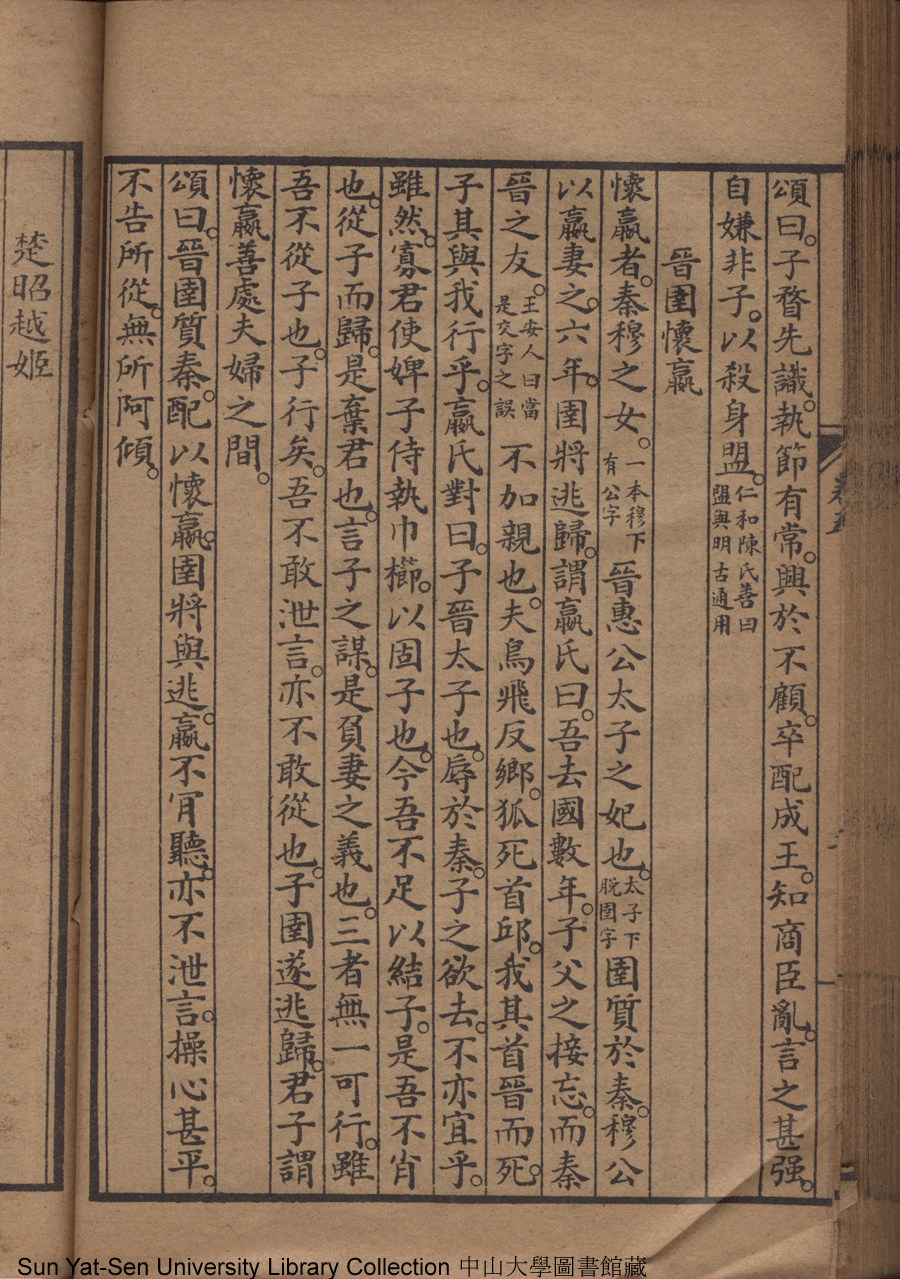 頌曰。子瞀先識。執節有常。興於不顧。卒配成王。知商臣亂。言之甚强。
自嫌非子。以殺身盟。仁和陳氏善曰盟與明古通用
晉圉懷嬴
懷嬴者。秦穆之女。一本穆下有公字晉惠公太子之妃也。太子下脫圉字圉質於秦。穆公
以嬴妻之。六年。圉將逃歸。謂嬴氏曰。吾去國數年。子父之接忘。而秦
晉之友。王安人曰當是交字之誤不加親也。夫鳥飛反鄉。狐死首邱。我其首晉而死。
子其與我行乎。嬴氏對曰。子晉太子也。辱於秦。子之欲去。不亦宜乎。
雖然。寡君使婢子侍執巾櫛。以固子也。今吾不足以結子。是吾不肖
也。從子而歸。是棄君也。言子之謀。是負妻之義也。三者無一可行。雖
吾不從子也。子行矣。吾不敢泄言。亦不敢從也。子圉遂逃歸。君子謂
懷嬴善處夫婦之間。
頌曰。晉圉質秦。配以懷嬴。圉將與逃。嬴不肎聽。亦不泄言。操心甚平。
不告所從。無所阿傾。
楚昭越姬
Sun Yat-Sen University Library Collection 中山大學圖書館藏